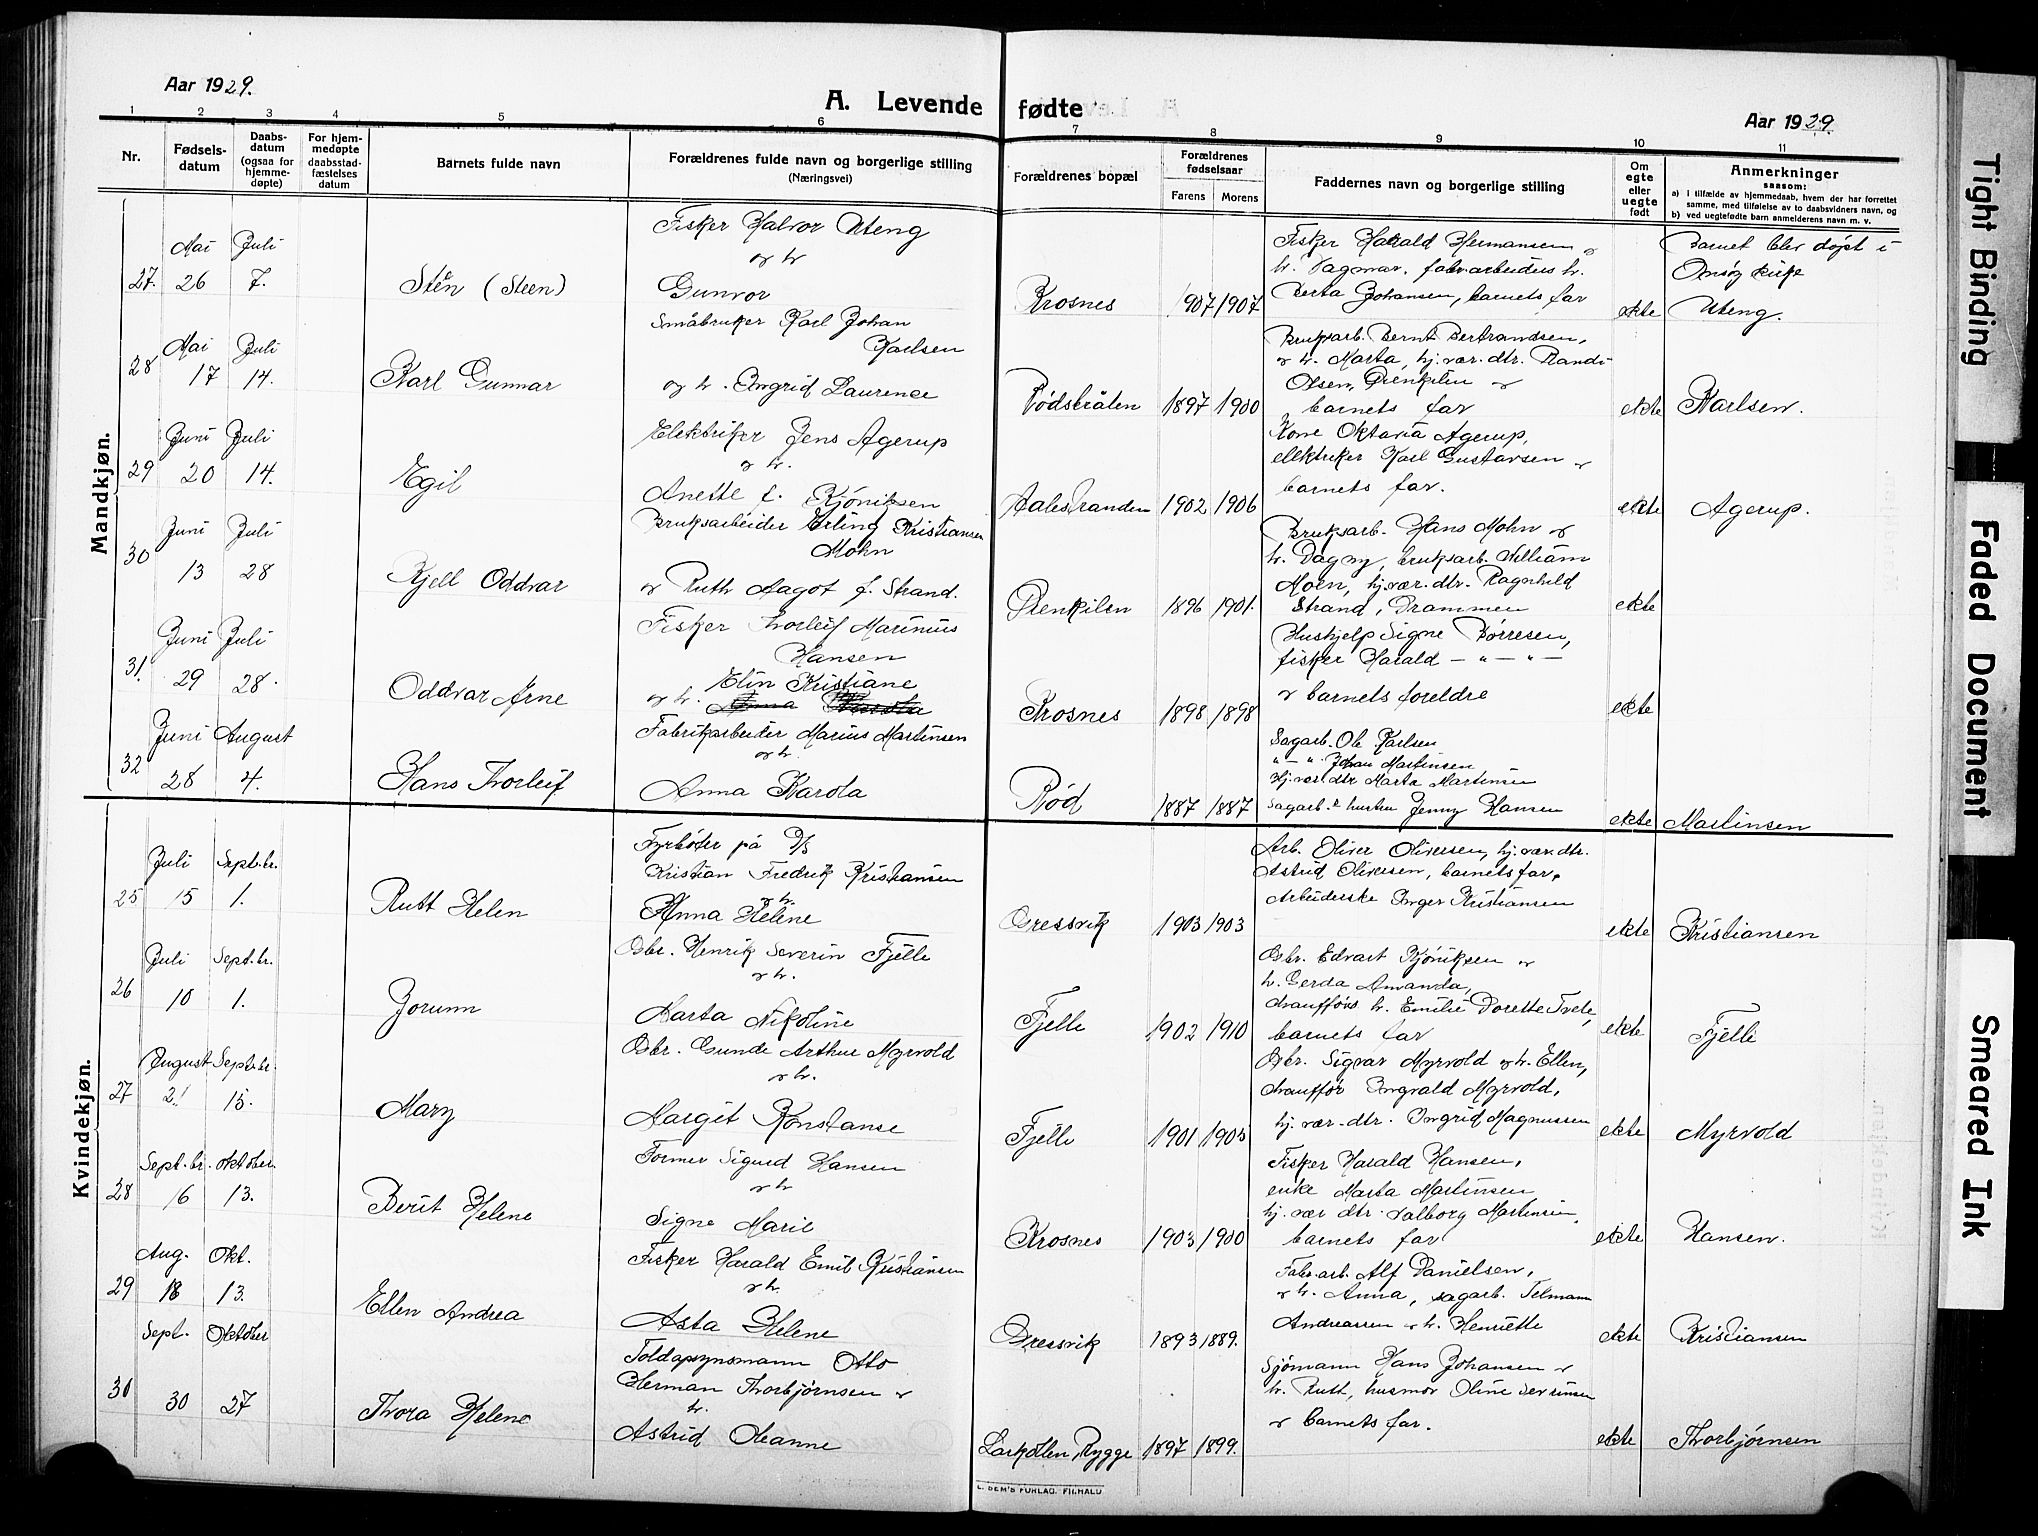 Aar 1929.
A. Levende fødte
Aar 1929.
1 2 3 4 5 6 7 8 9 10 11
Nr.
Fødsels-
datum
Daabs-
datum
(ogsaa for
hjemme-
døpte)
For hjem-
medøpte
daabsstad-
fæstelses
datum
Barnets fulde navn
Forældrenes fulde navn og borgerlige stilling
(Næringsvei)
Forældrenes bopæl
Forældrenes
fødselsaar
Farens
Morens
Faddernes navn og borgerlige stilling
Om
egte
eller
uegte
født
Anmerkninger
saasom:
a) i tilfælde av hjemmedaab, hvem der har forrettet
samme, med tilføielse av to daabsvidners navn, og
b) ved uegtefødt barn anmelderens navn m. v.
Mandkjøn.
27. Mai 26 Juli 7.
Stén (Steen)
Fisker Halvor Uteng
og h
Gunvor
Krosnes 1907 1907
Fisker Harald Hermansen og
h. Dagmar, fabr.arbeiders h.
Berta Johansen, barnets far
ekte
Barnet blev døpt i
Onsøy kirke
Uteng.
28 Mai 17 Juli 14.
Karl Gunnar
Småbruker Karl Johan
Karlsen
og h. Ingrid Laurence
Rødsbråten 1897 1900
Bruksarb. Bernt Bertrandsen,
og h. Marta, hj.vær. dtr. Randi
Olsen, Dienkilen og
barnets far
ekte
Karlsen.
29 Juni 20 Juli 14.
Egil
Elektriker Jens Agerup
og h.
Anette f. Kjöniksen
Aalestranden 1902 1906
Kone Oktavia Agerup,
elektriker Karl Gustavsen og
barnets far.
ekte
Agerup.
30 Juni 13 Juli 28
Kjell Oddvar
Bruksarbeider Erling Kristiansen
Mohn
og Ruth Aagot f. Strand.
Dienkilen 1896 1901.
Bruksarb. Hans Mohn og
h. Dagny, bruksarb. William
Moen, hj.vær. dtr. Ragnhild
Strand, Drammen
ekte
31. Juni 29 Juli 28.
Oddvar Arne
Fisker Thorleif Marinius
Hansen
Elin Kristiane
og h.
Krosnes 1898 1898
Hushjelp Signe Börresen,
fisker Harald — " — " —
og barnets foreldre
ekte
32 Juni 28 August 4.
Hans Thorleif
Fabrikarbeider Marius Martinsen
og h.
Anna Karola
Rød 1887 1887
Sagarb. Ole Karlsen
" — " Johan Martinsen
Hj.vær dtr Marta Martinsen
Sagarb.s hustru Jenny Hansen
ekte
Martinsen
Kvindekjøn.
25 Juli 15 Sept.br. 1.
Rutt Helen
Fyrbøter på D/S
Kristian Fredrik Kristiansen
og h.
Anna Helene
Gressvik 1903 1903
Arb. Oliver Oliversen, hj.vær.dtr.
Astrid Oliversen, barnets far,
Arbeiderske Inger Kristiansen
ekte
Kristiansen
26 Juli 10 Sept.br. 1.
Jorunn
Gbr. Henrik Severin Fjelle
og h.
Marta Nikoline
Fjelle 1902 1910
Gbr. Edvart Kjöniksen og
h. Gerda Amanda,
chaufførs h. Emilie Dorette Tvete,
barnets far
ekte
Fjelle
27 August 21 Sept.br. 15.
Mary
Gbr. Gunde Arthur Myrvold
og h.
Margit Konstanse
Fjelle 1901 1905
Gbr. Sigvar Myrvold og h. Ellen,
chauffør Ingvald Myrvold,
hj.vær. dtr. Ingrid Magnussen
ekte
Myrvold
28 Sept.br. 16 Oktober 13.
Berit Helene
Former Sigurd Hansen
og h
Signe Marie
Krosnes 1903 1900
Fisker Harald Hansen,
enke Marta Martinsen
hj.vær dtr. Valborg Martinsen,
barnets far
ekte
Hansen.
29 Aug. 18 Okt. 13.
Ellen Andrea
Fisker Harald Emil Kristiansen
og h.
Asta Helene
Gressvik 1893 1889.
Fabr.arb. Alf Danielsen,
og h. Anna, sagarb. Telmann
Andreassen og h. Henriette
ekte
Kristiansen
30 Sept. 30 Oktober 27
Thora Helene
Toldopsynsmann Otto
Herman Thorbjørnsen og
h.
Astrid Oleanne
Larkollen, Rygge 1897 1899.
Sjømann Hans Johansen og
h. Ruth, husmor Oline Sevrinsen
og barnets far.
ekte
Thorbjørnsen
SEM'S FORLAG. FR.HALD
Tight Binding
Faded Document
Smeared Ink